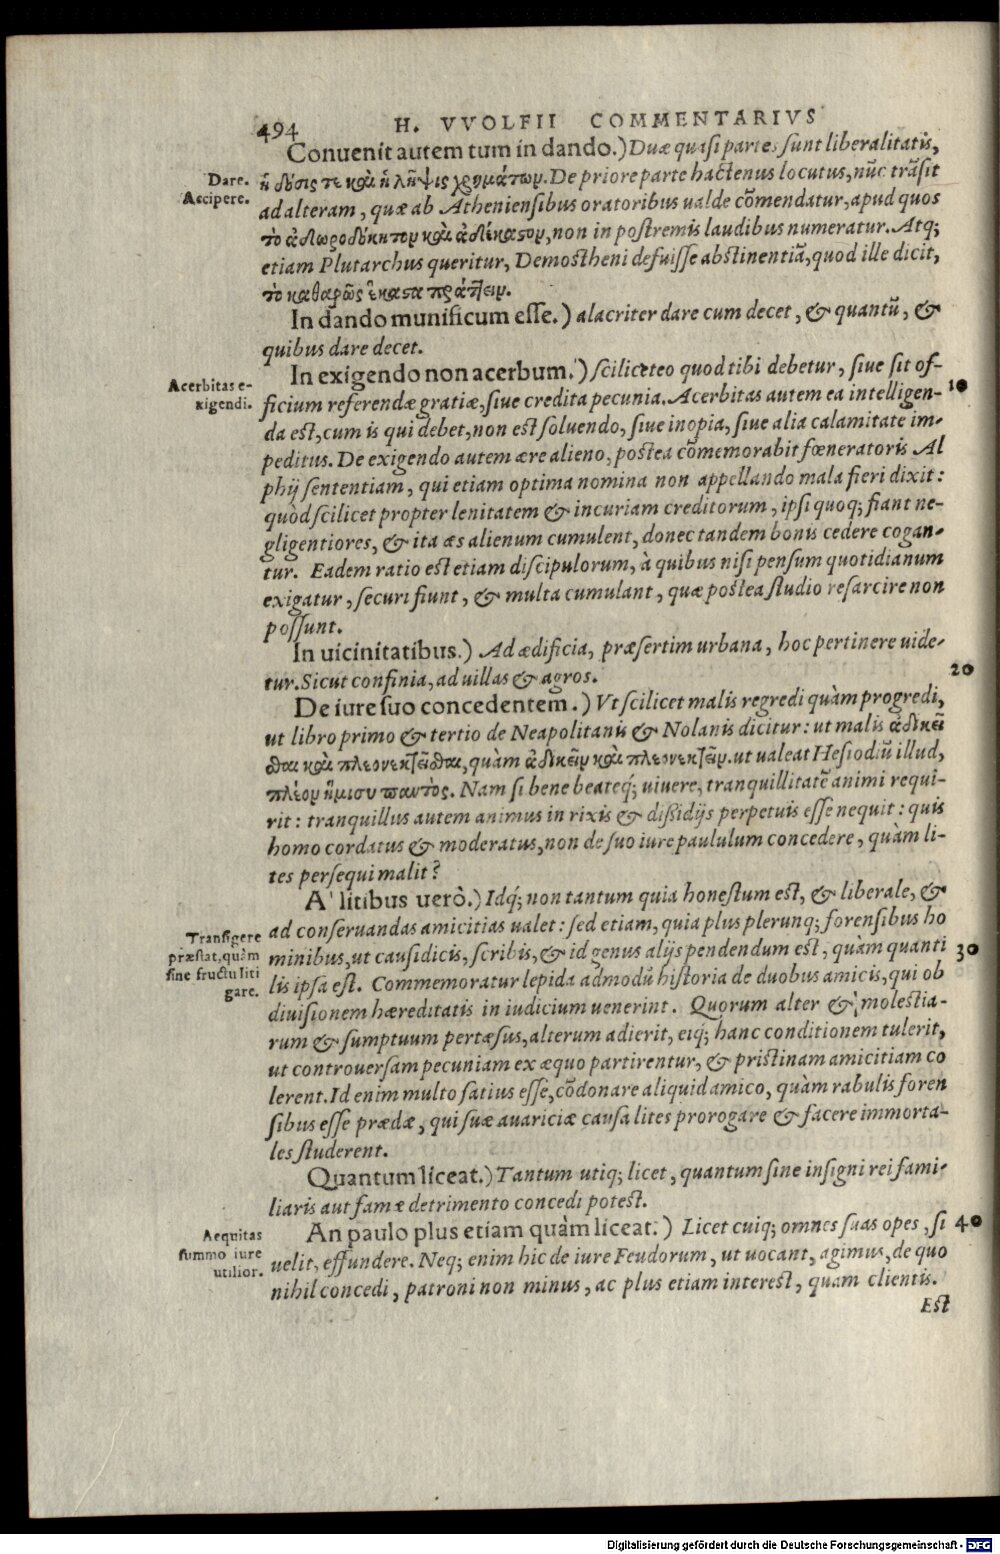 494 H. VVOLFII COMMENTARIVS
Conuenit autem tum in dando.) Duæ quasi partes sunt liberalitatis,
Dare.
Accipere.
ἡ δόσις τε καὶ ἡ λῆψις χρημάτων. De priore parte hactenus locutus, nūc trāsit
ad alteram, quæ ab Atheniensibus oratoribus ualde cōmendatur, apud quos
τὸ ἀδωροδόκητον καὶ ἀδέκαστον, non in postremis laudibus numeratur. Atq;
etiam Plutarchus queritur, Demostheni defuisse abstinentiā, quod ille dicit,
τὸ καθαρῶς ἕκαστα πράττειν.
In dando munificum esse.) alacriter dare cum decet, & quantū, &
quibus dare decet.
Acerbitas e-
xigendi.
In exigendo non acerbum.) scilicet eo quod tibi debetur, siue sit of-
10
ficium referendæ gratiæ, siue credita pecunia. Acerbitas autem ea intelligen-
da est, cum is qui debet, non est soluendo, siue inopia, siue alia calamitate im-
peditus. De exigendo autem ære alieno, postea cōmemorabit fœneratoris Al
phij sententiam, qui etiam optima nomina non appellando mala fieri dixit:
quòd scilicet propter lenitatem & incuriam creditorum, ipsi quoq; fiant ne-
gligentiores, & ita æs alienum cumulent, donec tandem bonis cedere cogan-
tur. Eadem ratio est etiam discipulorum, à quibus nisi pensum quotidianum
exigatur, securi fiunt, & multa cumulant, quæ postea studio resarcire non
possunt.
In uicinitatibus.) Ad ædificia, præsertim urbana, hoc pertinere uide-
20
tur. Sicut confinia, ad uillas & agros.
De iure suo concedentem.) Vt scilicet malis regredi quàm progredi,
ut libro primo & tertio de Neapolitanis & Nolanis dicitur: ut malis ἀδικεῖ
σθαι καὶ πλεονεκτεῖσθαι, quàm ἀδικεῖν καὶ πλεονεκτεῖν. ut ualeat Hesiodiū illud,
πλέον ἥμισυ παντός. Nam si bene beateq́; uiuere, tranquillitatē animi requi-
rit: tranquillus autem animus in rixis & dissidijs perpetuis esse nequit: quis
homo cordatus & moderatus, non de suo iure paululum concedere, quàm li-
tes persequi malit?
A' litibus uerò.) Idq́; non tantum quia honestum est, & liberale, &
Transigere
præstat, quàm
sine fructu liti
gare.
ad conseruandas amicitias ualet: sed etiam, quia plus plerunq; forensibus ho
minibus, ut causidicis, scribis, & id genus alijs pendendum est, quàm quanti
30
lis ipsa est. Commemoratur lepida admodū historia de duobus amicis, qui ob
diuisionem hæreditatis in iudicium uenerint. Quorum alter & molestia-
rum & sumptuum pertæsus, alterum adierit, eiq́; hanc conditionem tulerit,
ut controuersam pecuniam ex æquo partirentur, & pristinam amicitiam co
lerent. Id enim multo satius esse, cōdonare aliquid amico, quàm rabulis foren
sibus esse prædæ, qui suæ auariciæ causa lites prorogare & facere immorta-
les studerent.
Quantum liceat.) Tantum utiq; licet, quantum sine insigni rei fami-
liaris aut famæ detrimento concedi potest.
An paulo plus etiam quàm liceat.) Licet cuiq; omnes suas opes, si
40
Aequitas
summo iure
utilior.
uelit, effundere. Neq; enim hic de iure Feudorum, ut uocant, agimus, de quo
nihil concedi, patroni non minus, ac plus etiam interest, quam clientis.
Est
Digitalisierung gefördert durch die Deutsche Forschungsgemeinschaft - DFG